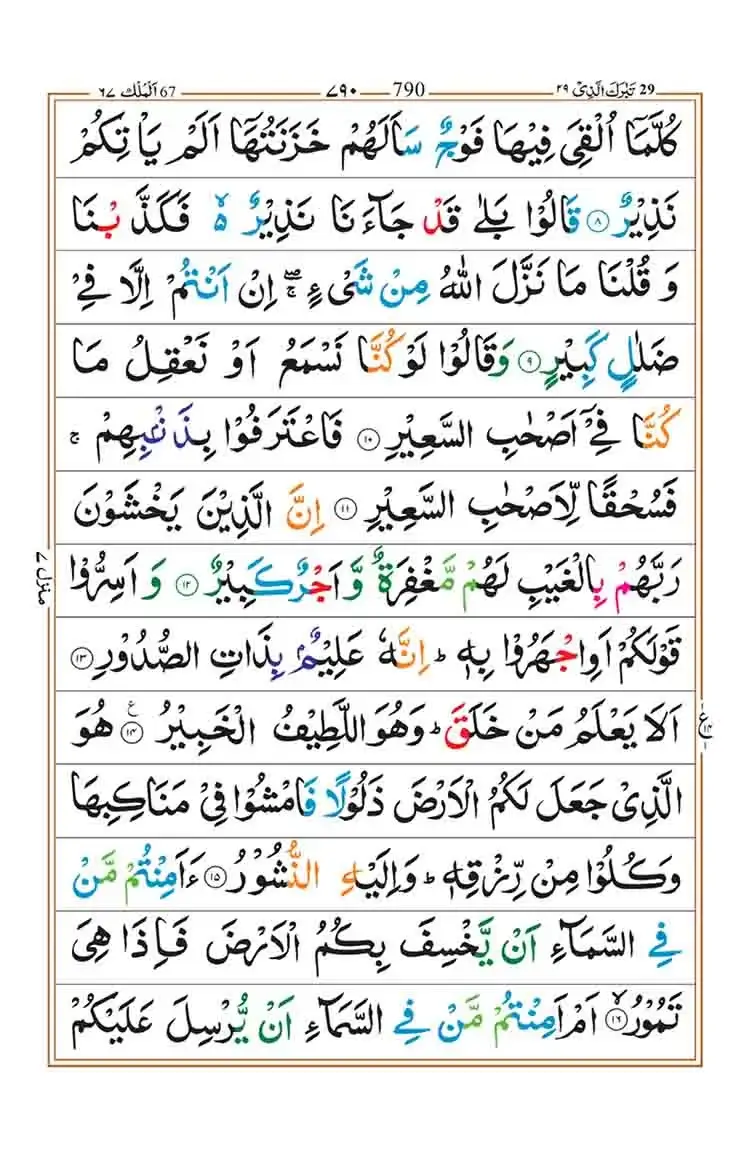 29 تَبٰرَكَ الَّذِیْ ٢٩ 790 ٧٩٠ 67 اَلْمُلْك ٦٧
كُلَّمَاۤ اُلْقِیَ فِیْهَا فَوْجٌ سَاَلَهُمْ خَزَنَتُهَاۤ اَلَمْ یَاْتِكُمْ
نَذِیْرٌ ۟۸ قَالُوْا بَلٰی قَدْ جَآءَنَا نَذِیْرٌ ۙ۬ ۵ فَكَذَّبْنَا
وَ قُلْنَا مَا نَزَّلَ اللّٰهُ مِنْ شَیْءٍ ۖۚ اِنْ اَنْتُمْ اِلَّا فِیْ
ضَلٰلٍ كَبِیْرٍ ۟۹ وَقَالُوْا لَوْ كُنَّا نَسْمَعُ اَوْ نَعْقِلُ مَا
كُنَّا فِیْۤ اَصْحٰبِ السَّعِیْرِ ۟۱۰ فَاعْتَرَفُوْا بِذَنْۢبِهِمْ ۚ
فَسُحْقًا لِّاَصْحٰبِ السَّعِیْرِ ۟۱۱ اِنَّ الَّذِیْنَ یَخْشَوْنَ
رَبَّهُمْ بِالْغَیْبِ لَهُمْ مَّغْفِرَةٌ وَّاَجْرٌ كَبِیْرٌ ۟۱۲ وَ اَسِرُّوْا
قَوْلَكُمْ اَوِاجْهَرُوْا بِهٖ ؕ اِنَّهٗ عَلِیْمٌۢ بِذَاتِ الصُّدُوْرِ ۟۱۳
اَلَا یَعْلَمُ مَنْ خَلَقَ ؕ وَهُوَ اللَّطِیْفُ الْخَبِیْرُ ۟۱۴ ع هُوَ
الَّذِیْ جَعَلَ لَكُمُ الْاَرْضَ ذَلُوْلًا فَامْشُوْا فِیْ مَنَاكِبِهَا
وَكُلُوْا مِنْ رِّزْقِهٖ ؕ وَاِلَیْهِ النُّشُوْرُ ۟۱۵ ءَاَمِنْتُمْ مَّنْ
فِی السَّمَآءِ اَنْ یَّخْسِفَ بِكُمُ الْاَرْضَ فَاِذَا هِیَ
تَمُوْرُ ۙ۟۱۶ اَمْ اَمِنْتُمْ مَّنْ فِی السَّمَآءِ اَنْ یُّرْسِلَ عَلَیْكُمْ
منزل ۷